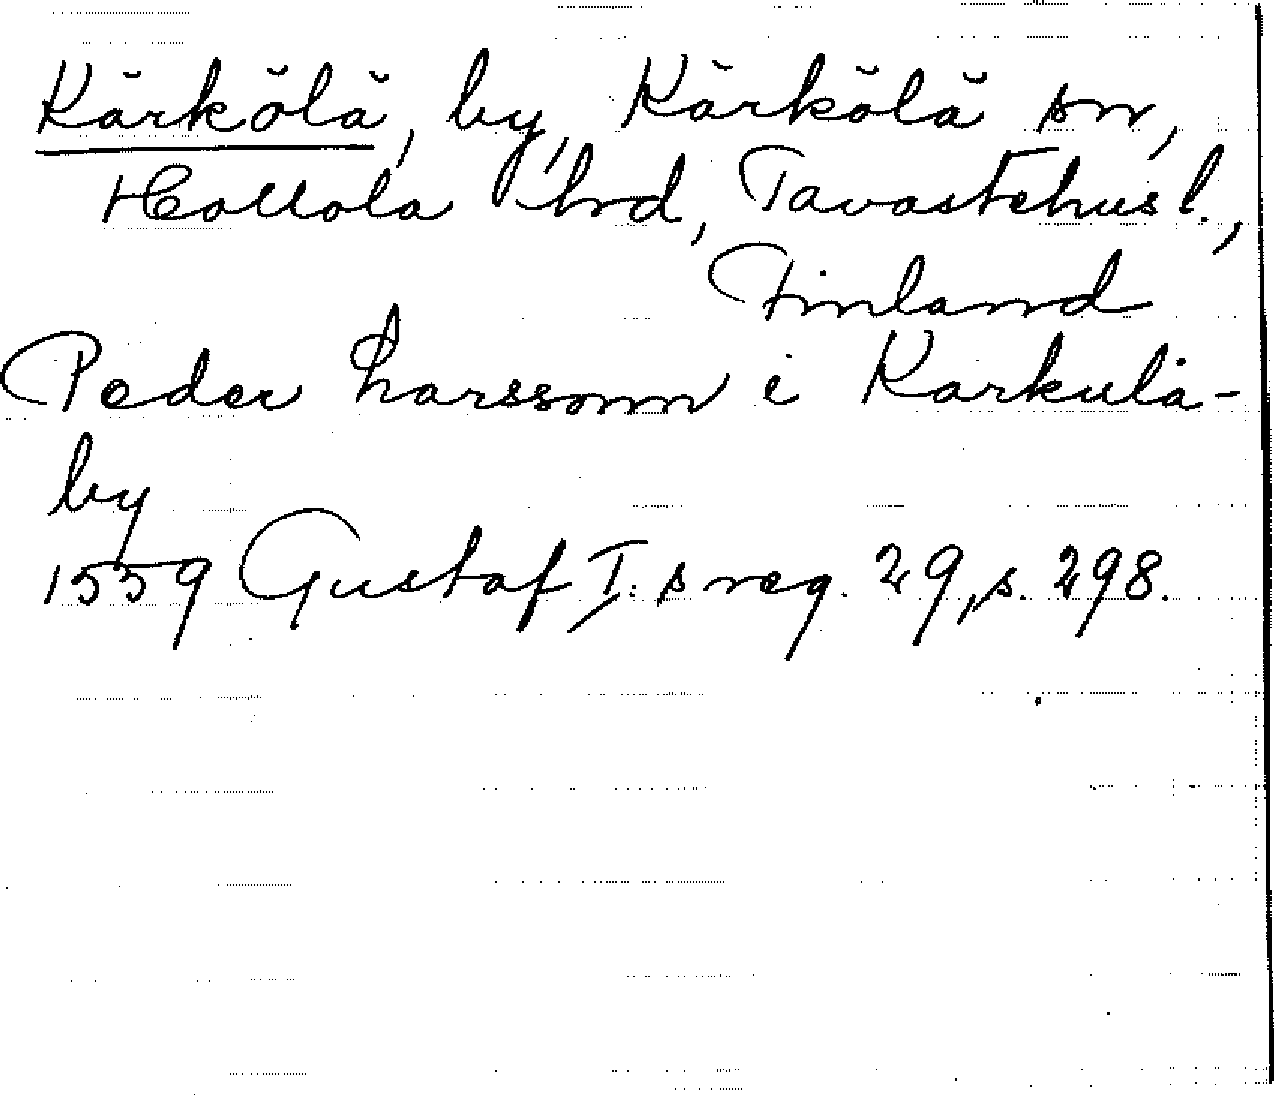 Kärkölä, by, Kärkölä sn,
Hollola hrd, Tavastehus l.,
Finland
Peder Larssonn i Karkula-
by
1559 Gustaf I:s reg. 29, s. 298.